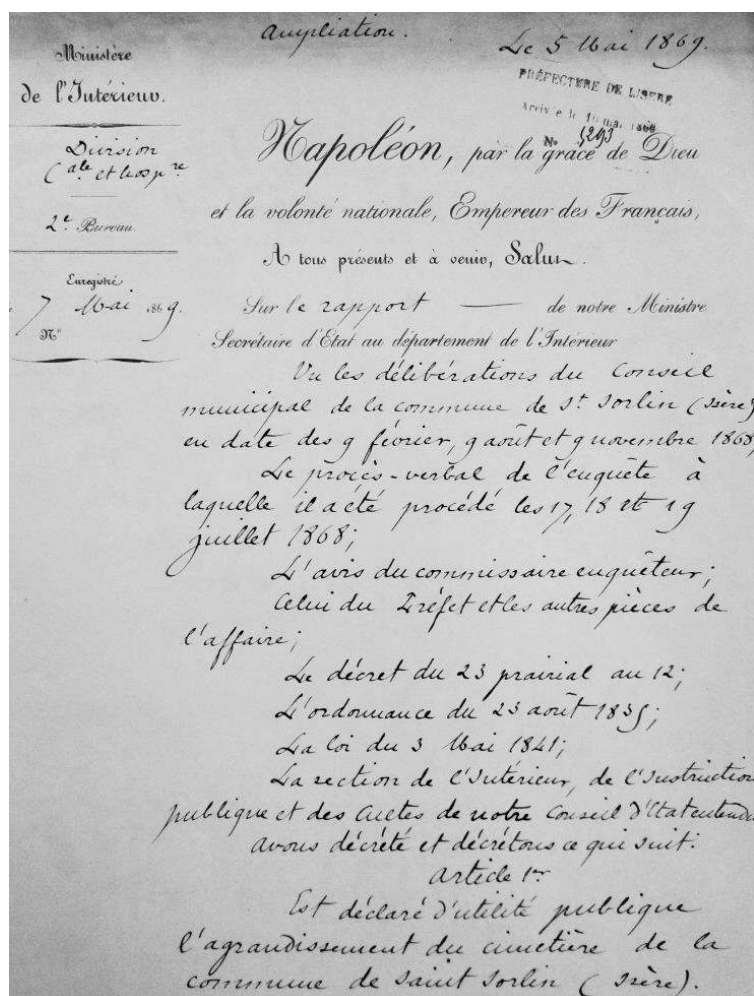 Ampliation.
Le 5 Mai 1869.
Ministère
de l'Intérieur.
PRÉFECTURE DE L'ISÈRE
Arrivé le 10 mai 1869
N° 5293
Division
Cale et hospre
2e Bureau.
Enregistré
7 Mai 1869.
N°
Napoléon, par la grâce de Dieu
et la volonté nationale, Empereur des Français,
A tous présents et à venir, Salut.
Sur le rapport — de notre Ministre
Secrétaire d'Etat au département de l'Intérieur
Vu les délibérations du Conseil
municipal de la commune de St Sorlin (Isère)
en date des 9 février, 9 août et 9 novembre 1868;
Le procès-verbal de l'enquête à
laquelle il a été procédé les 17, 18 et 19
juillet 1868;
L'avis du commissaire enquêteur;
Celui du Préfet et les autres pièces de
l'affaire;
Le décret du 23 prairial an 12;
L'ordonnance du 23 août 1835;
La loi du 3 Mai 1841;
La section de l'Intérieur, de l'Instruction
publique et des Cultes de notre Conseil d'Etat entendue
avons décrété et décrétons ce qui suit:
Article 1er
Est déclaré d'utilité publique
l'agrandissement du cimetière de la
commune de Saint Sorlin (Isère).